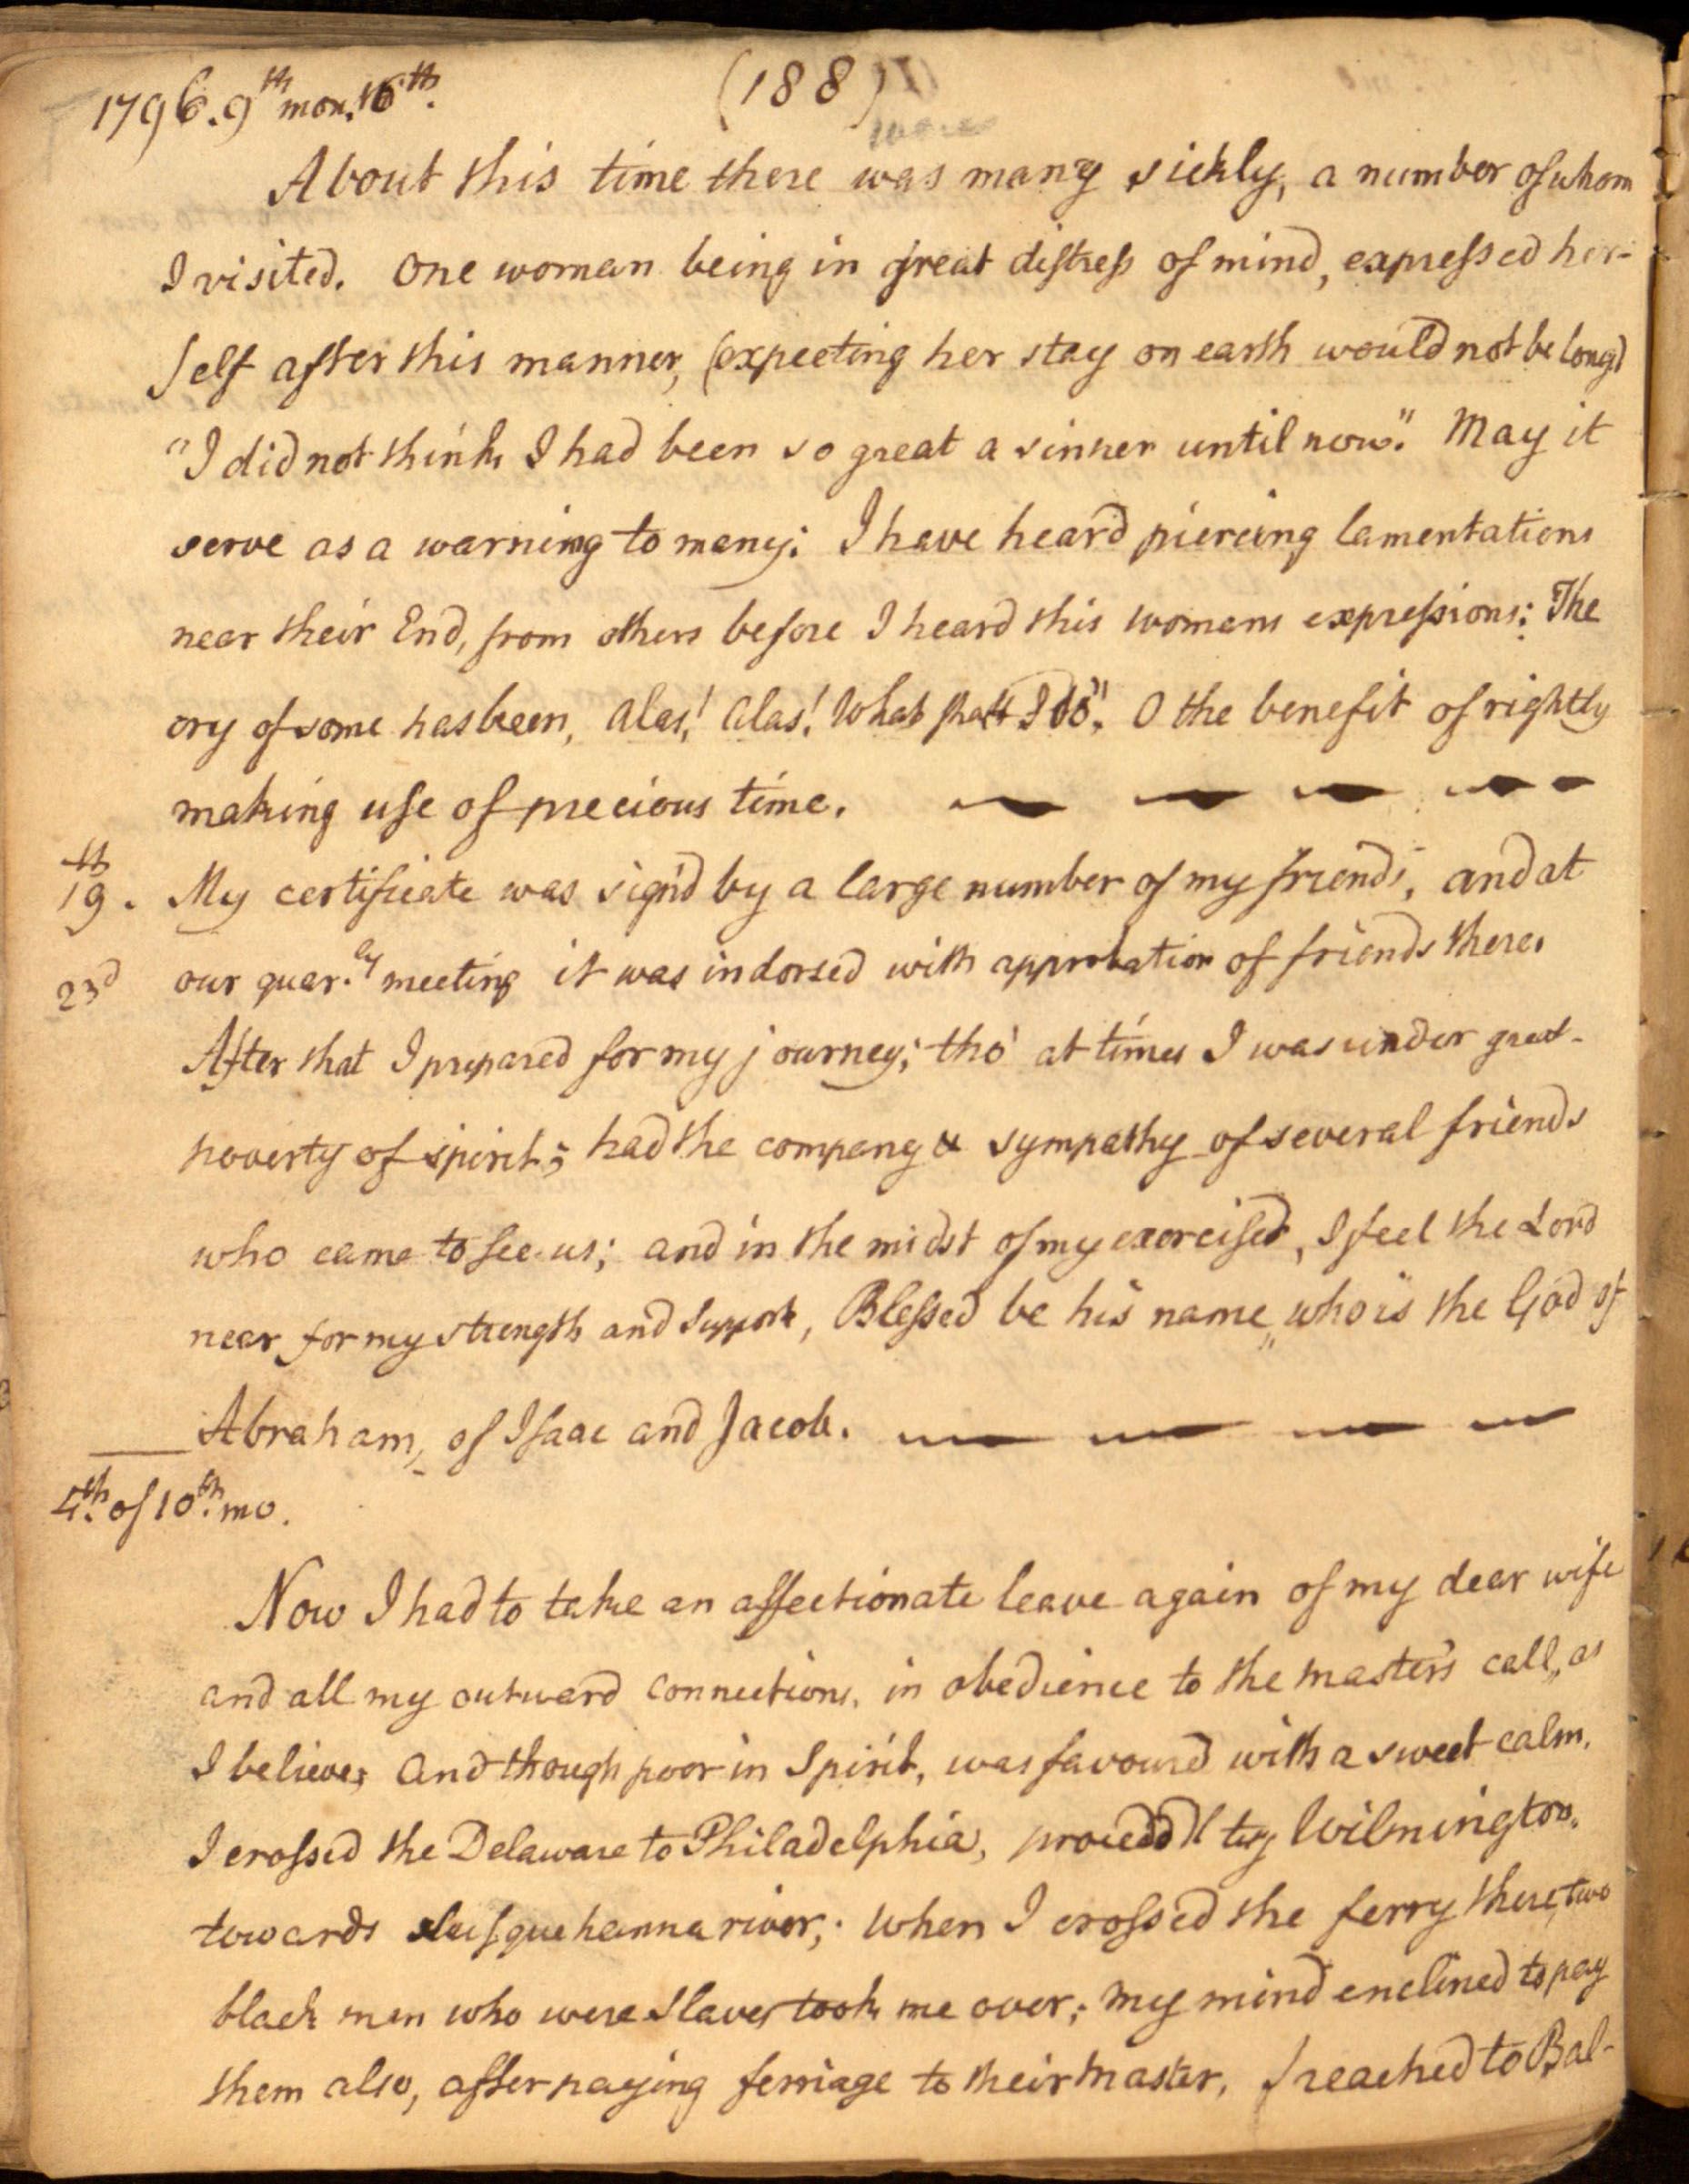 1796. 9th mon. 16th. (188)
were
About this time there was many sickly, a number of whom
I visited. One woman being in great distress of mind, expressed her-
self after this manner, (expecting her stay on earth would not be long)
"I did not think I had been so great a sinner until now." May it
serve as a warning to many: I have heard piercing lamentations
near their End, from others before I heard this womans expressions: The
cry of some has been, Alas! Alas! What shall I do". O the benefit of rightly
making use of precious time.
19th. My certificate was sign'd by a large number of my friends, and at
23d our quar.ly meeting it was indorsed with approbation of friends there.
After that I prepared for my journey; tho' at times I was under great
poverty of spirit; had the company & sympathy of several friends
who came to see us; and in the midst of my exercises, I feel the Lord
near for my strength and support, Blessed be his name, who is the God of
Abraham, of Isaac and Jacob.
4th. of 10th. mo.
Now I had to take an affectionate leave again of my dear wife
and all my outward connections, in obedience to the masters call, as
I believe; and though poor in Spirit, was favoured with a sweet calm.
I crossed the Delaware to Philadelphia, proceedd by Wilmington,
towards Susquehanna river; when I crossed the ferry there, two
black men who were slaves took me over; my mind enclined to pay
them also, after paying ferriage to their master. I reached to Bal-